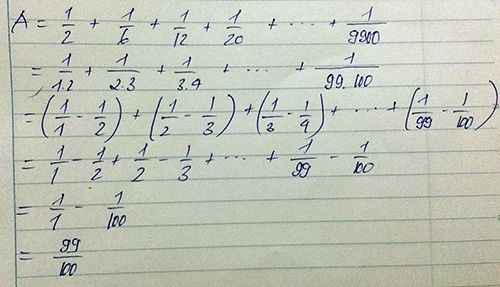 A = 1/2 + 1/6 + 1/12 + 1/20 + ... + 1/9900
= 1/1.2 + 1/2.3 + 1/3.4 + ... + 1/99.100
= (1/1 - 1/2) + (1/2 - 1/3) + (1/3 - 1/4) + ... + (1/99 - 1/100)
= 1/1 - 1/2 + 1/2 - 1/3 + ... + 1/99 - 1/100
= 1/1 - 1/100
= 99/100